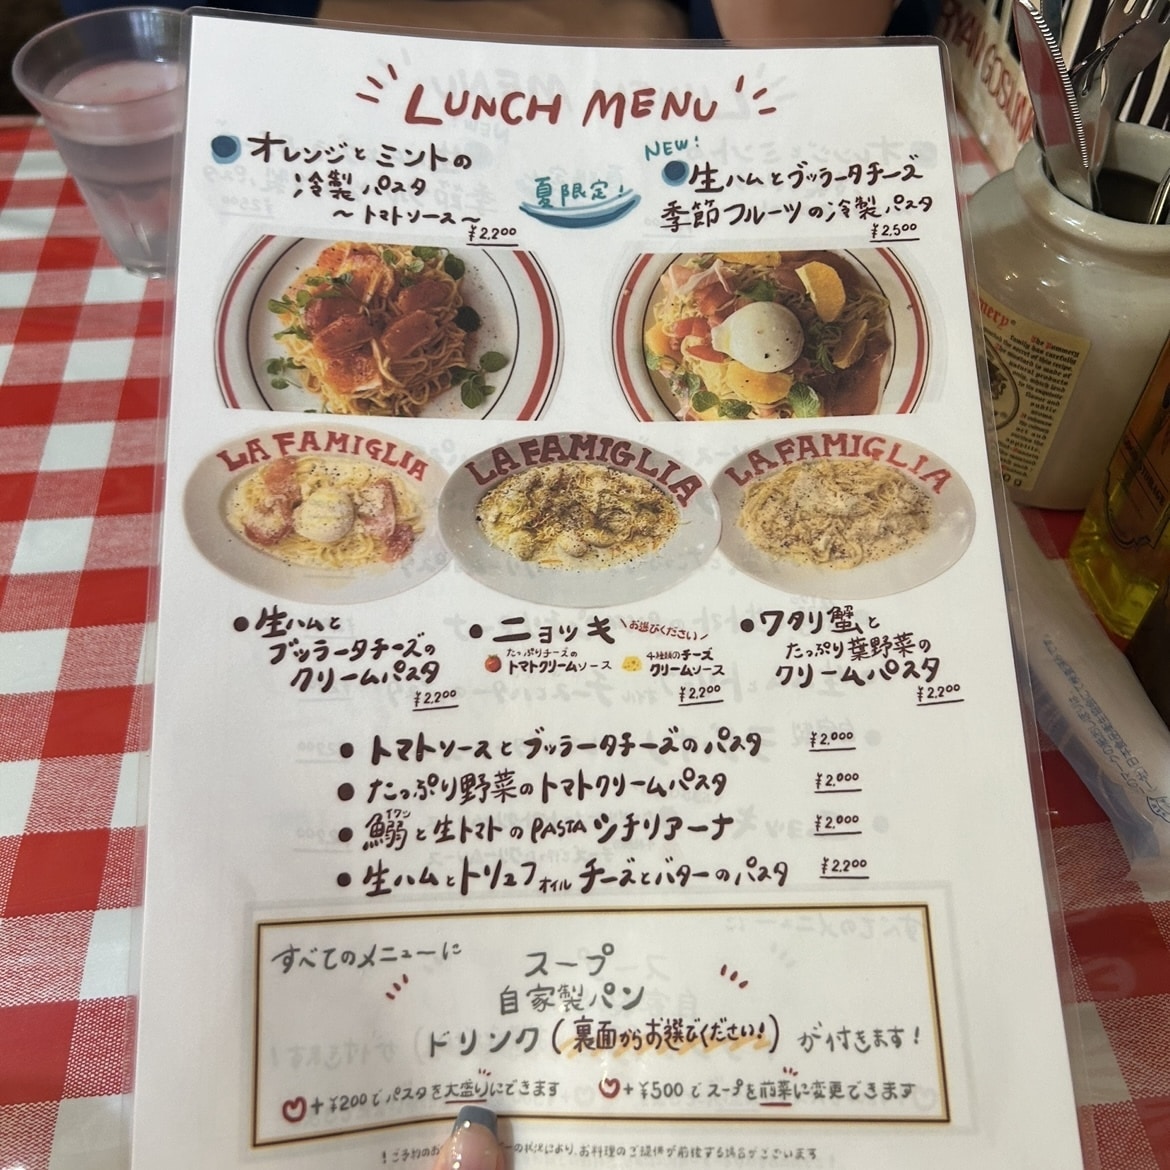 LUNCH MENU
オレンジとミントの
冷製パスタ
〜トマトソース〜
¥2,200
夏限定!
NEW!
生ハムとブッラータチーズ
季節フルーツの冷製パスタ
¥2,500
LA FAMIGLIA
LA FAMIGLIA
LA FAMIGLIA
生ハムと
ブッラータチーズの
クリームパスタ
¥2,200
ニョッキ お選びください
たっぷりチーズの
トマトクリームソース
4種類のチーズ
クリームソース
¥2,200
ワタリ蟹と
たっぷり葉野菜の
クリームパスタ
¥2,200
トマトソースとブッラータチーズのパスタ ¥2,000
たっぷり野菜のトマトクリームパスタ ¥2,000
鰯イワシと生トマトのPASTAシチリアーナ ¥2,000
生ハムとトリュフオイルチーズとバターのパスタ ¥2,200
すべてのメニューに
スープ
自家製パン
ドリンク(裏面からお選びください!)が付きます!
+¥200でパスタを大盛りにできます
+¥500でスープを前菜に変更できます
の状況により、お料理のご提供が前後する場合がございます
RYAN GOSLIN
The Pommery